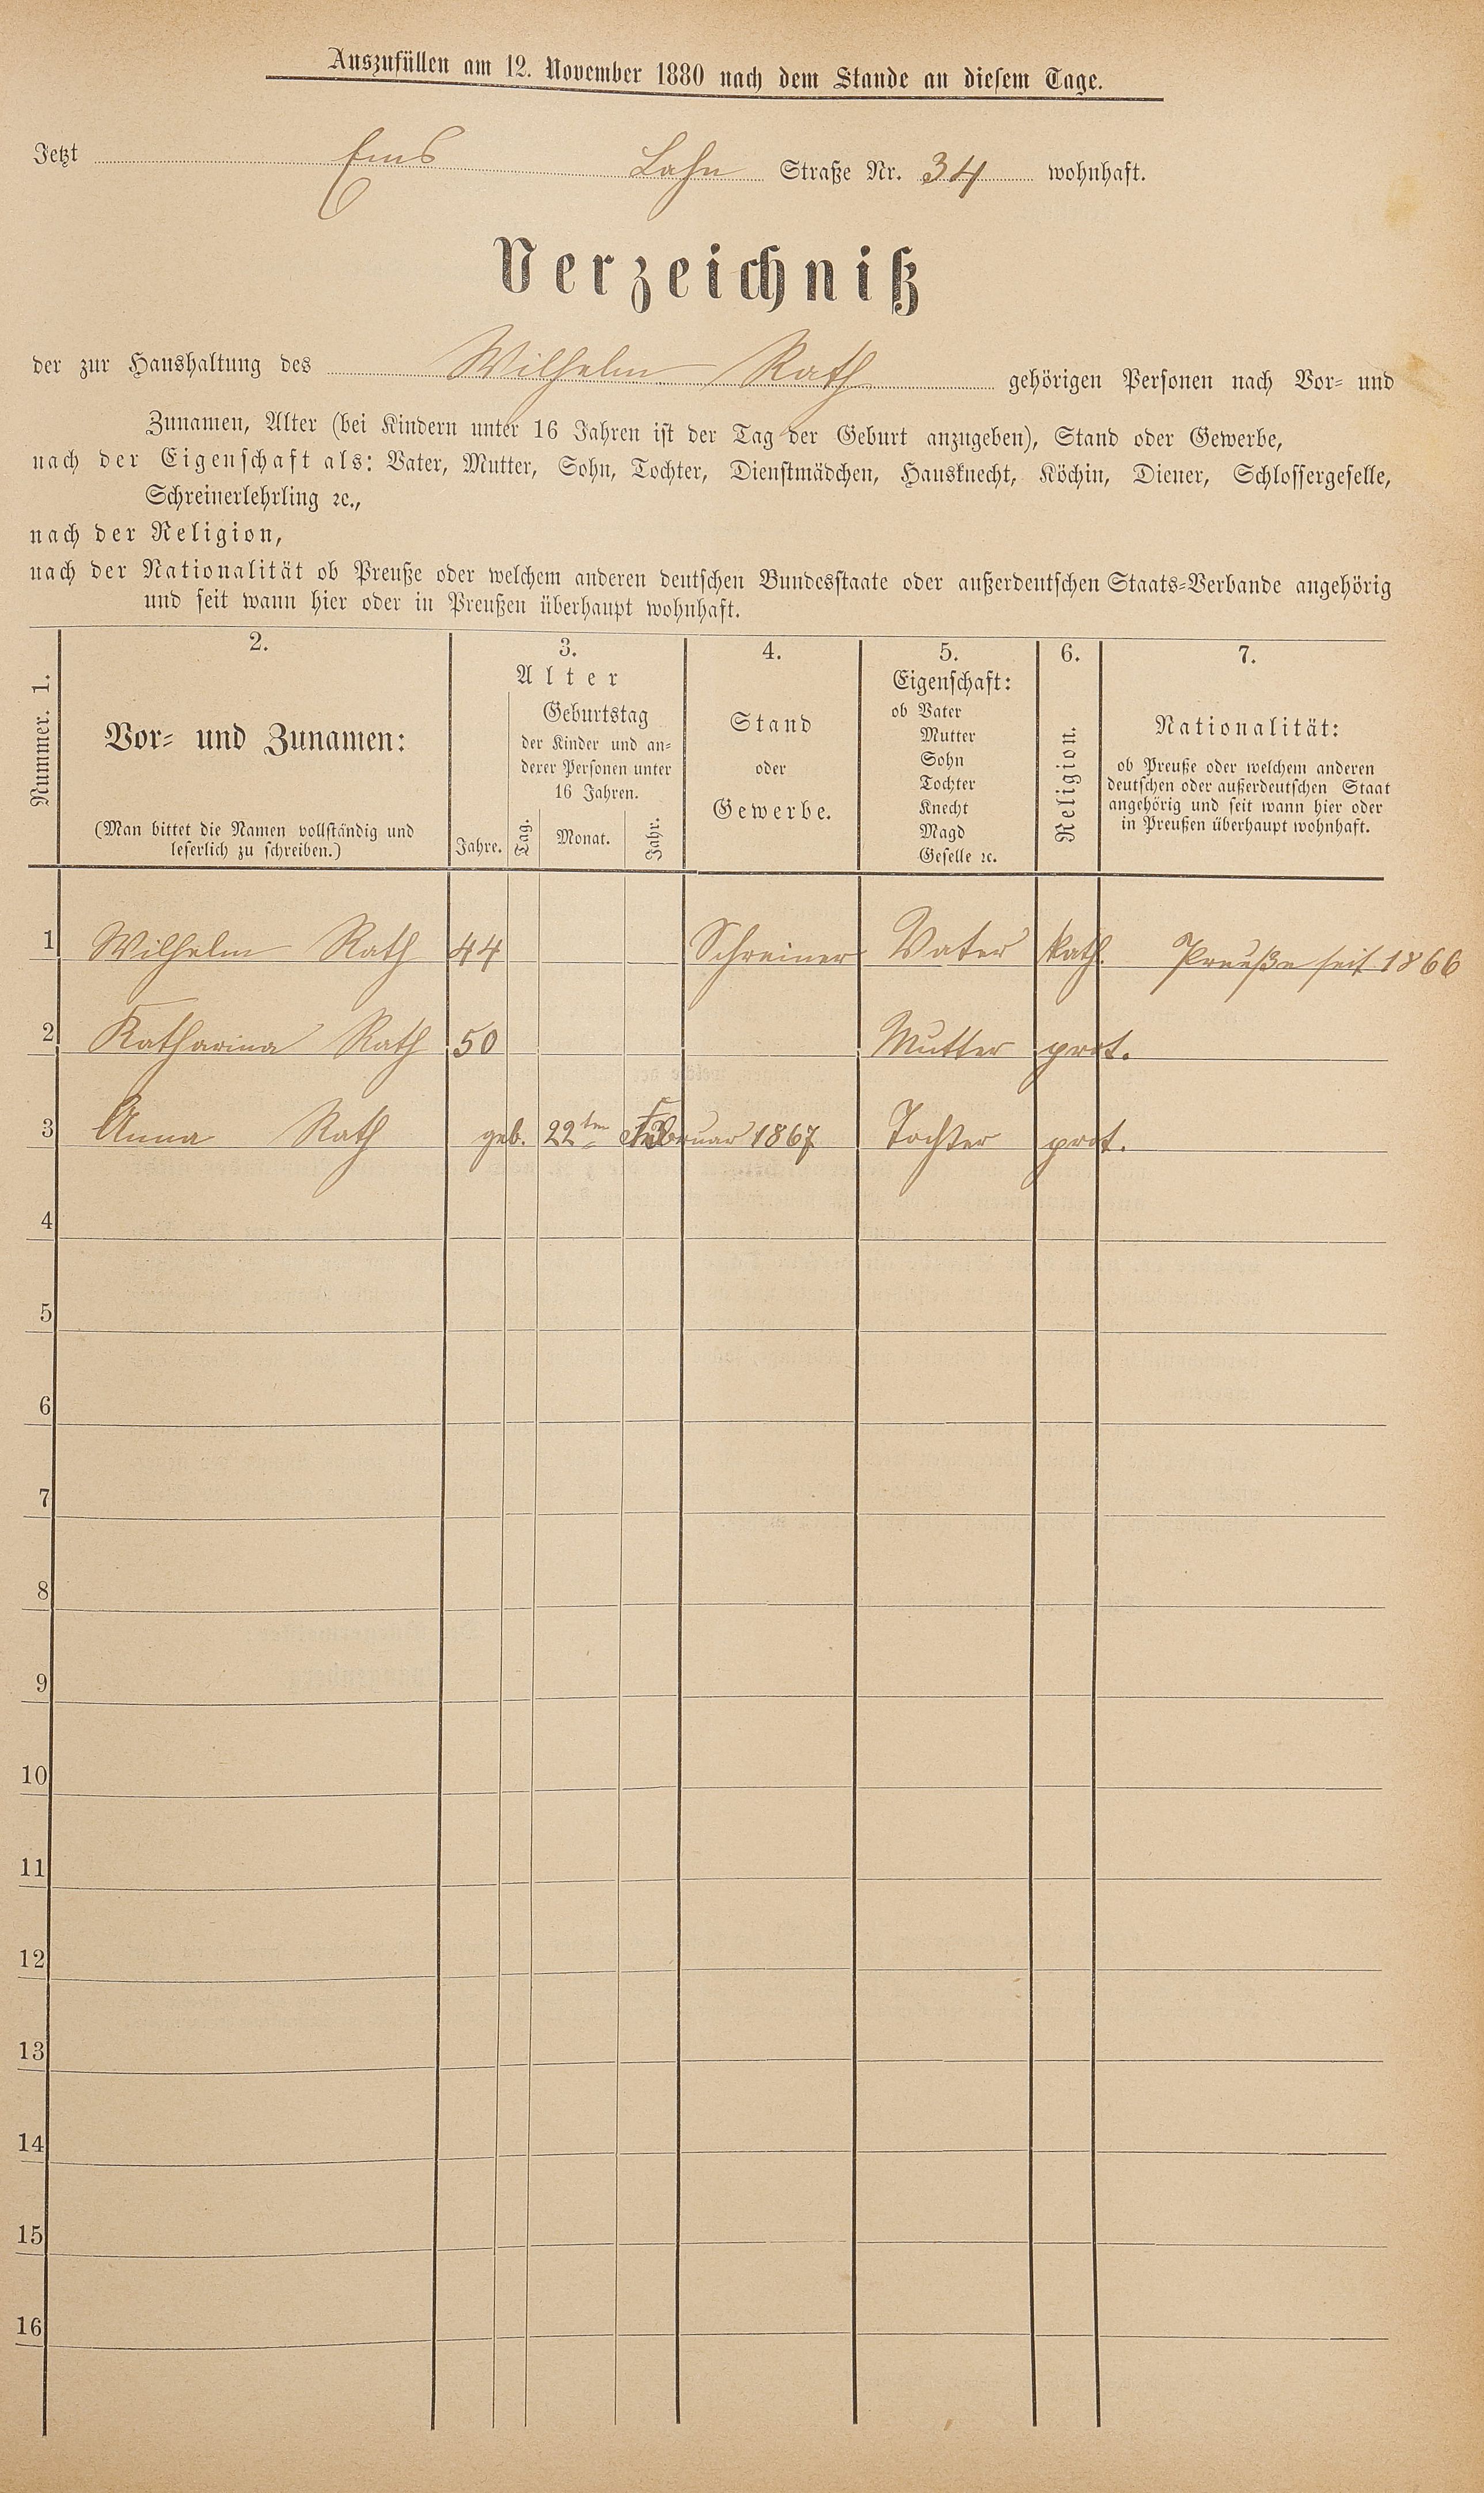 Auszufüllen am 12. November 1880 nach dem Stande an diesem Tage.
Jetzt Ems Lahn Straße Nr. 34 wohnhaft.
Verzeichniß
der zur Haushaltung des Wilhelm Rath gehörigen Personen nach Vor- und
Zunamen, Alter (bei Kindern unter 16 Jahren ist der Tag der Geburt anzugeben), Stand oder Gewerbe,
nach der Eigenschaft als: Vater, Mutter, Sohn, Tochter, Dienstmädchen, Hausknecht, Köchin, Diener, Schlossergeselle,
Schreinerlehrling ꝛc.,
nach der Religion,
nach der Nationalität ob Preuße oder welchem anderen deutschen Bundesstaate oder außerdeutschen Staats-Verbande angehörig
und seit wann hier oder in Preußen überhaupt wohnhaft.
Nummer. 1.
2.
Vor- und Zunamen:
(Man bittet die Namen vollständig und
leserlich zu schreiben.)
3.
Alter
Geburtstag
der Kinder und an-
derer Personen unter
16 Jahren.
Jahre. Tag. Monat. Jahr.
4.
Stand
oder
Gewerbe.
5.
Eigenschaft:
ob Vater
Mutter
Sohn
Tochter
Knecht
Magd
Geselle ꝛc.
6.
Religion.
7.
Nationalität:
ob Preuße oder welchem anderen
deutschen oder außerdeutschen Staat
angehörig und seit wann hier oder
in Preußen überhaupt wohnhaft.
1 Wilhelm Rath 44 Schreiner Vater kath. Preuße seit 1866
2 Katharina Rath 50 Mutter prot.
3 Anna Rath geb. 22ten Februar 1867 Tochter prot.
4
5
6
7
8
9
10
11
12
13
14
15
16